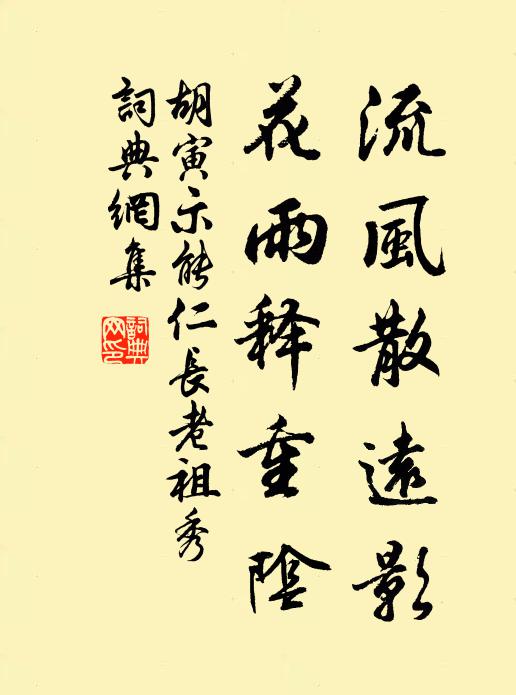 流風散遠影
花雨释重陰
胡寅示能仁長老祖秀
詞典網集
詞典
网印